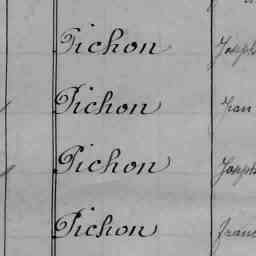 Pichon Joseph
Pichon Jean
Pichon Joseph
Pichon Franc